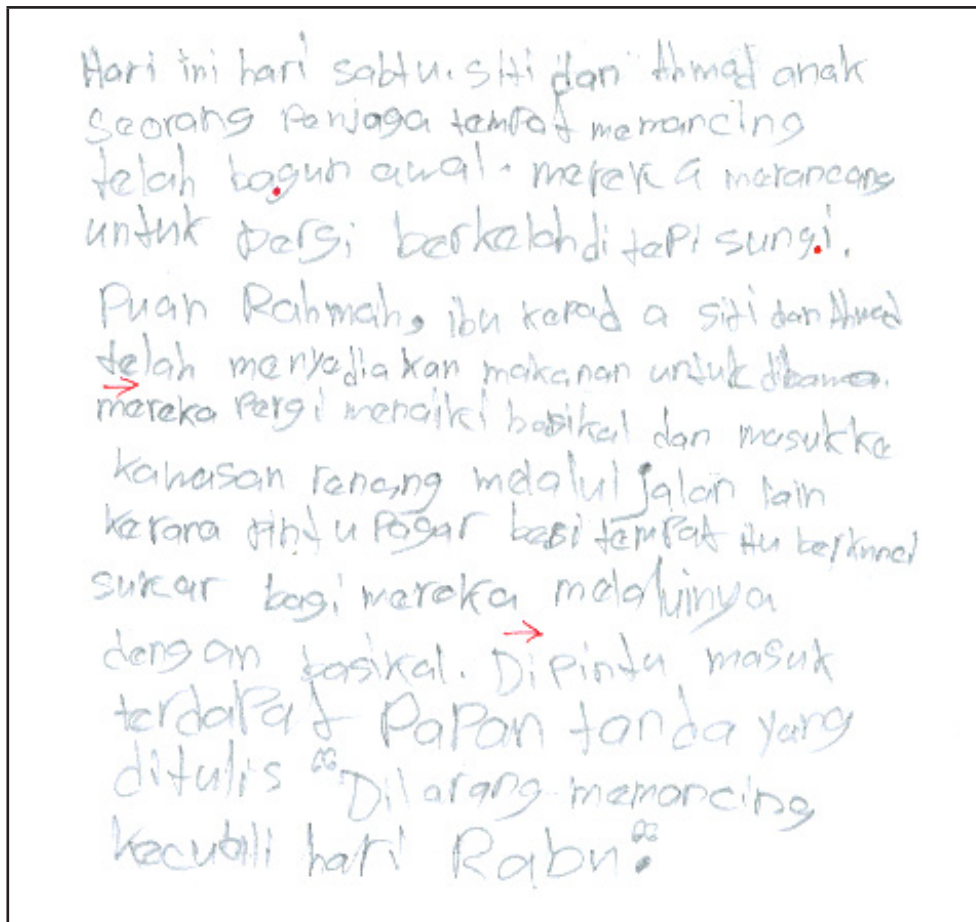 Hari ini hari sabtu. siti dan Ahmad anak
seorang Penjaga tempat memancing
telah bagun awal. merek a merancang
untuk pergi berkelah di tepi sungi.
Puan Rahmah, ibu kepad a siti dan Ahmad
telah menyediakan makanan untuk dibawa.
mereka Pergi menaiki basikal dan masuk ke
kawasan renang melalui jalan lain
kerana pintu Pagar besi tempat itu berkunci
sukar bagi mereka melaluinya
dengan basikal. Di pintu masuk
terdaPat PaPan tanda yang
ditulis “Dilarang memancing
kecuali hari Rabu“.